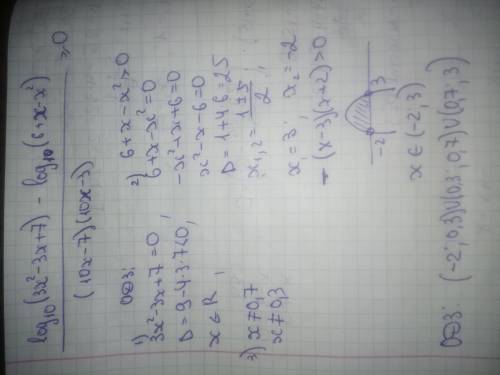 log₁₀(3x²-3x+7) - log₁₀(6+x-x²) ≥ 0
(10x-7)(10x-3)
ОДЗ:
1) 3x²-3x+7=0,
D=9-4·3·7<0,
x∈R,
3) x≠0,7
x≠0,3
2) 6+x-x²>0
6+x-x²=0
-x²+x+6=0
x²-x-6=0
D=1+4·6=25
x₁,₂=(1±5)/2,
x₁=3; x₂=-2
-(x-3)(x+2)>0
-2 3
x∈(-2;3)
ОДЗ: (-2;0,3)∪(0,3;0,7)∪(0,7;3)